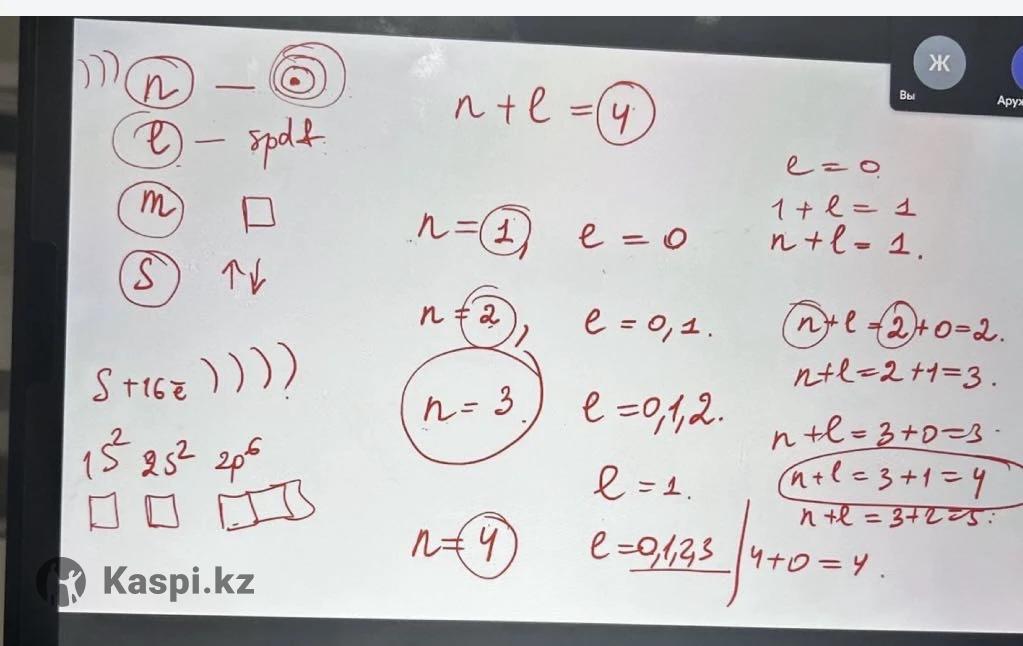 n —
l — spdf.
m
s ↑↓
S +16ē ))))
1S² 2S² 2p⁶
n + l = 4
n = 1, l = 0
n = 2, l = 0, 1.
n = 3. l = 0,1,2.
l = 1.
n = 4 l = 0,1,2,3 4+0=4.
l = 0
1 + l = 1
n + l = 1.
n+l = 2+0=2.
n+l = 2+1=3.
n+l = 3+0=3.
n+l = 3+1=4
n+l = 3+2=5.
Ж
Вы
Kaspi.kz